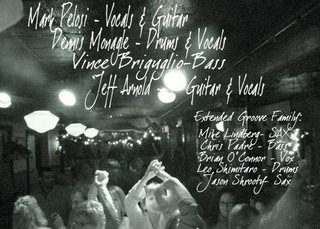 Mark Pelosi - Vocals & Guitar
Dennis Monagle - Drums & Vocals
Vince Briguglio-Bass
Jeff Arnold - Guitar & Vocals
Extended Groove Family:
Mike Lindberg- SAX
Chris Padré - Bass
Brian O'Connor - Vox
Leo Shimitaro - Drums
Jason Shrooty- Sax